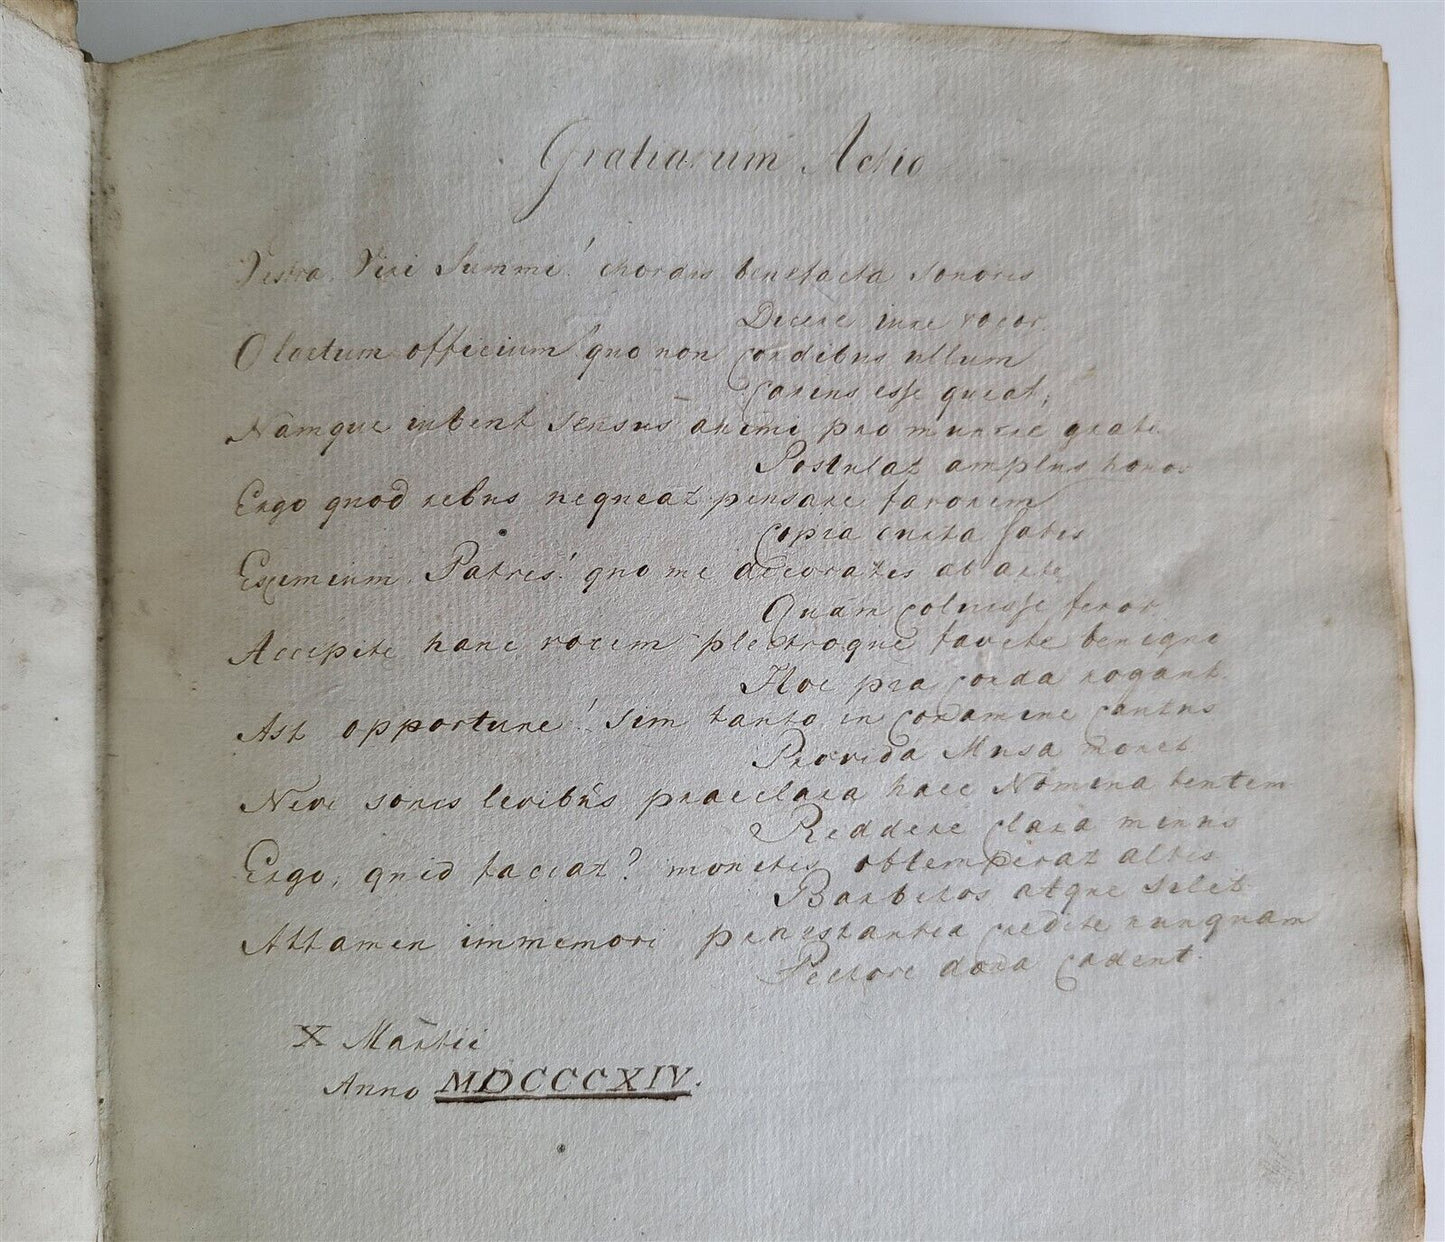 Gratiarum Actio
Vestra Viri Summi! chordis benefacta sonoris
Dicere iure vocor.
O laetum officium quo non cordibus ullum
Carius esse queat;
Namque iubent sensus animi pro munere grati
Postulat amplus honor
Ergo quod rebus nequeat pensare favorem
Copia cuncta satis
Eximium Patres! quo me decoratis ab arte
Quam coluisse feror
Accipite hanc vocem plectroque favete benigne
Hoc pia corda rogant.
Ast opportune! sim tanto in conamine cautus
Provida Musa monet
Neve sonis levibus praeclara haec Nomina tentem
Reddere clara minus
Ergo, quid faciat? monitis obtemperat altis
Barbitos atque silet
Attamen immemori praestantia credite nunquam
Pectore dona cadent.
X Martii
Anno MDCCCXIV.